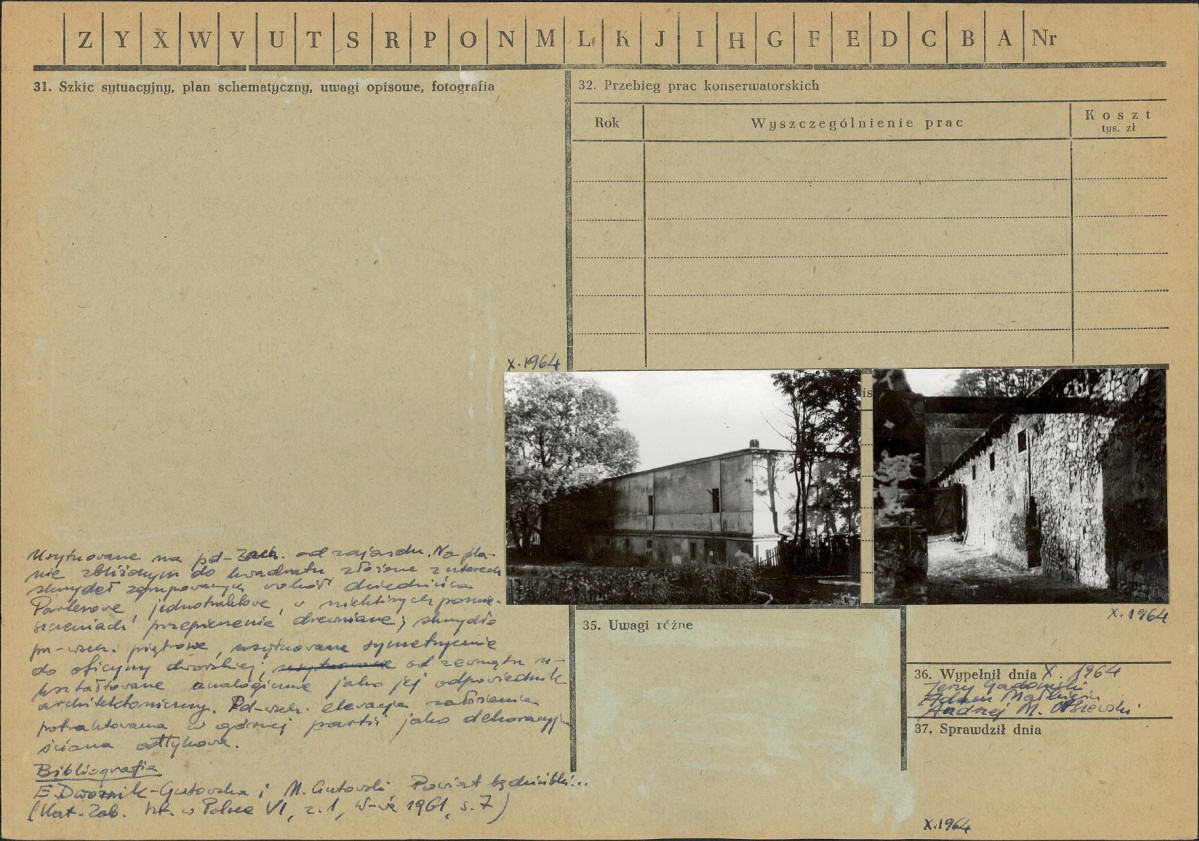 Z Y X W V U T S R P O N M L K J I H G F E D C B A Nr
31. Szkic sytuacyjny, plan schematyczny, uwagi opisowe, fotografia
32. Przebieg prac konserwatorskich
Rok
Wyszczególnienie prac
Koszt
tys. zł
X.1964
is
Usytuowane na pd-zach. od zajazdu. Na pla-
nie zbliżonym do kwadratu złożone z czterech
skrzydeł zgrupowanych wokół dziedzińca
Parterowe, jednotraktowe, w niektórych pomie-
szczeniach przepierzenie drewniane; skrzydło
pn-wsch. piętrowe, usytuowane symetrycznie
do oficyny dworskiej; usytuowane od zewnątrz u-
kształtowane analogicznie jako jej odpowiednik
architektoniczny. Pd-wsch. elewacja założenia
potraktowana w górnej partii jako dekoracyjna
ściana attykowa.
Bibliografia
E. Dwornik-Gutowska i M. Gutowski Powiat będziński...
(Kat. Zab. Szt. w Polsce VI, z.1, W-wa 1961, s.7)
X.1964
35. Uwagi różne
36. Wypełnił dnia X. 1964
Jerzy Gadomski
Adam Małkiewicz
Andrzej M. Olszewski
37. Sprawdził dnia
X.1964